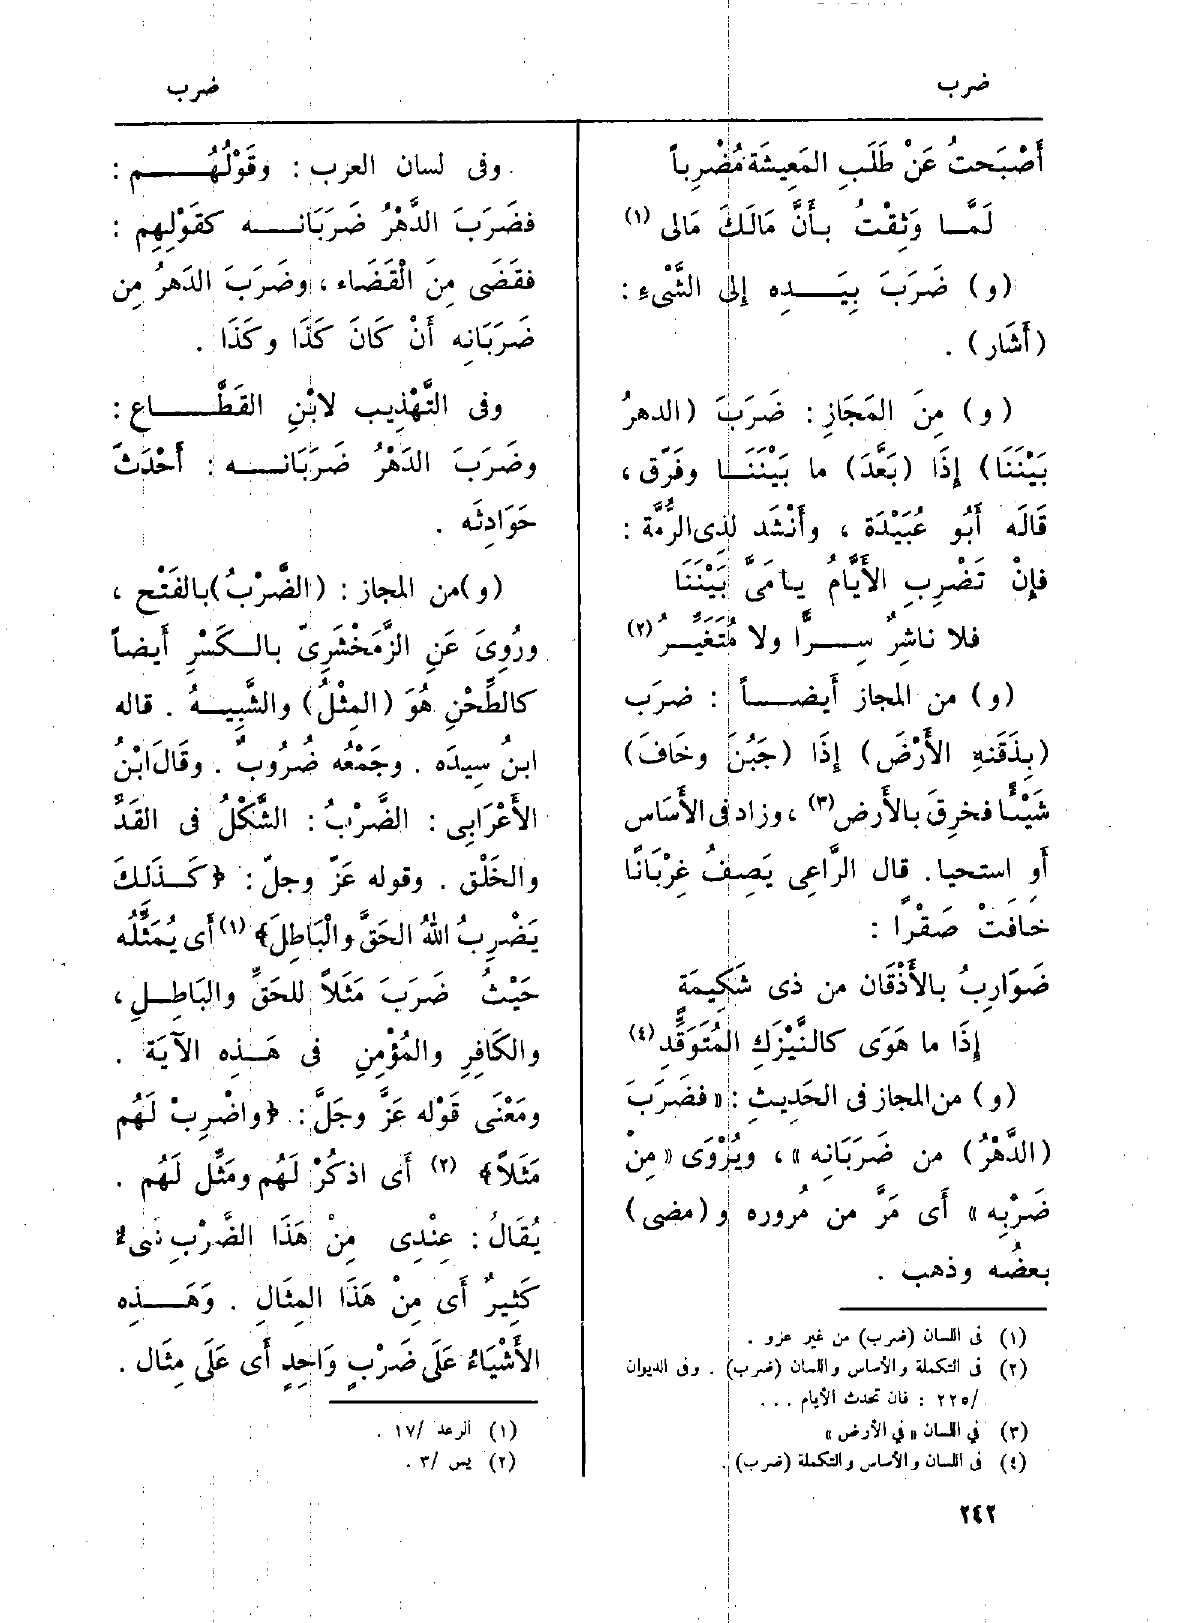 ضرب
ضرب
أَصْبَحتُ عَنْ طَلَبِ المَعِيشَة مُضْرِباً
لَمَّا وَثِقْتُ بأَنَّ مَالَكَ مَالى (١)
(و) ضَرَبَ بِيَدِه إِلى الشَّىءِ :
(أَشَار) .
(و) مِنَ المَجَازِ : ضَرَبَ (الدهرُ
بَيْنَنَا) إِذَا (بَعَّدَ) ما بَيْنَنَا وفَرّق ،
قَالَه أَبُو عُبَيْدَة ، وأَنْشَد لذِى الرُّمَّة :
فإِنْ تَضْرِبِ الأَيَّامُ يامَىَّ بَيْنَنَا
فلا ناشِرٌ سِرًّا ولا مُتَغَيِّرُ (٢)
(و) من المجاز أَيضاً : ضرَب
(بِذَقَنهِ الأَرْضَ) إِذَا (جَبُنَ وخَافَ)
شَيْئًا فخرِقَ بالأَرض (٣) ، وزاد فى الأَسَاس
أَوِ استحيا. قال الرَّاعِى يَصِفُ غِرْبَانًا
خافَتْ صَقْرًا :
ضَوَارِبُ بالأَذْقَان من ذى شَكِيمَةٍ
إِذَا ما هَوَى كالنَّيْزَكِ المُتَوَقِّدِ (٤)
(و) من المجاز فى الحَدِيثِ : «فضَرَبَ
(الدَّهْرُ) من ضَرَبَانِه» ، ويُرْوَى «مِنْ
ضَرْبِه» أَى مَرَّ من مُروره و(مضى)
بعضُه وذهب .
(١) فى اللسان (ضرب) من غير عزو .
(٢) فى التكملة والأساس واللسان (ضرب) . وفى الديوان
/٢٢٥ : فان تحدث الأيام ...
(٣) في اللسان «في الأرض»
(٤) فى اللسان والأساس والتكملة (ضرب) .
وفى لسان العرب : وقَوْلُهُم :
فضَرَبَ الدَّهْرُ ضَرَبَانه كقَوْلِهِم :
فقَضَى مِنَ الْقَضَاء ، وضَرَبَ الدَهرُ مِن
ضَرَبَانِه أَنْ كَانَ كَذَا وكَذَا .
وفى التَّهْذِيب لابْنِ القَطَّاع :
وضَرَبَ الدَهْرُ ضَرَبَانه : أَحْدَثَ
حَوَادِثَه .
(و) من المجاز : (الضَّرْبُ) بالفَتْح ،
ورُوِىَ عَنِ الزَّمَخْشَرِىّ بالكَسْرِ أَيضاً
كالطِّحْنِ هُوَ (المِثْلُ) والشَّبِيهُ . قاله
ابنُ سِيدَه . وجَمْعُه ضُرُوبٌ . وقَالَ ابْنُ
الأَعْرَابِى : الضَّرْبُ : الشَّكْلُ فى القَدِّ
والخَلْق . وقوله عَزّ وجلّ : ﴿كَذَلِكَ
يَضْرِبُ اللهُ الحَقَّ والْبَاطِلَ﴾ (١) أَى يُمَثِّلُه
حَيْثُ ضَرَبَ مَثَلاً للحَقِّ والبَاطِلِ ،
والكَافِرِ والمُؤْمِنِ فى هَذِه الآيَة .
ومَعْنَى قَوْله عَزَّ وجَلَّ : ﴿واضْرِبْ لَهُم
مَثَلاً﴾ (٢) أَى اذكُرْ لَهُم ومَثِّل لَهُم .
يُقَالُ : عِنْدِى مِنْ هَذَا الضَّرْبِ شىء
كَثِيرٌ أَى مِنْ هَذَا المِثَالِ . وَهَذِه
الأَشْيَاءُ عَلَى ضَرْبٍ وَاحِدٍ أَى عَلَى مِثَال .
(١) الرعد /١٧ .
(٢) يس /٣٠
٢٤٢